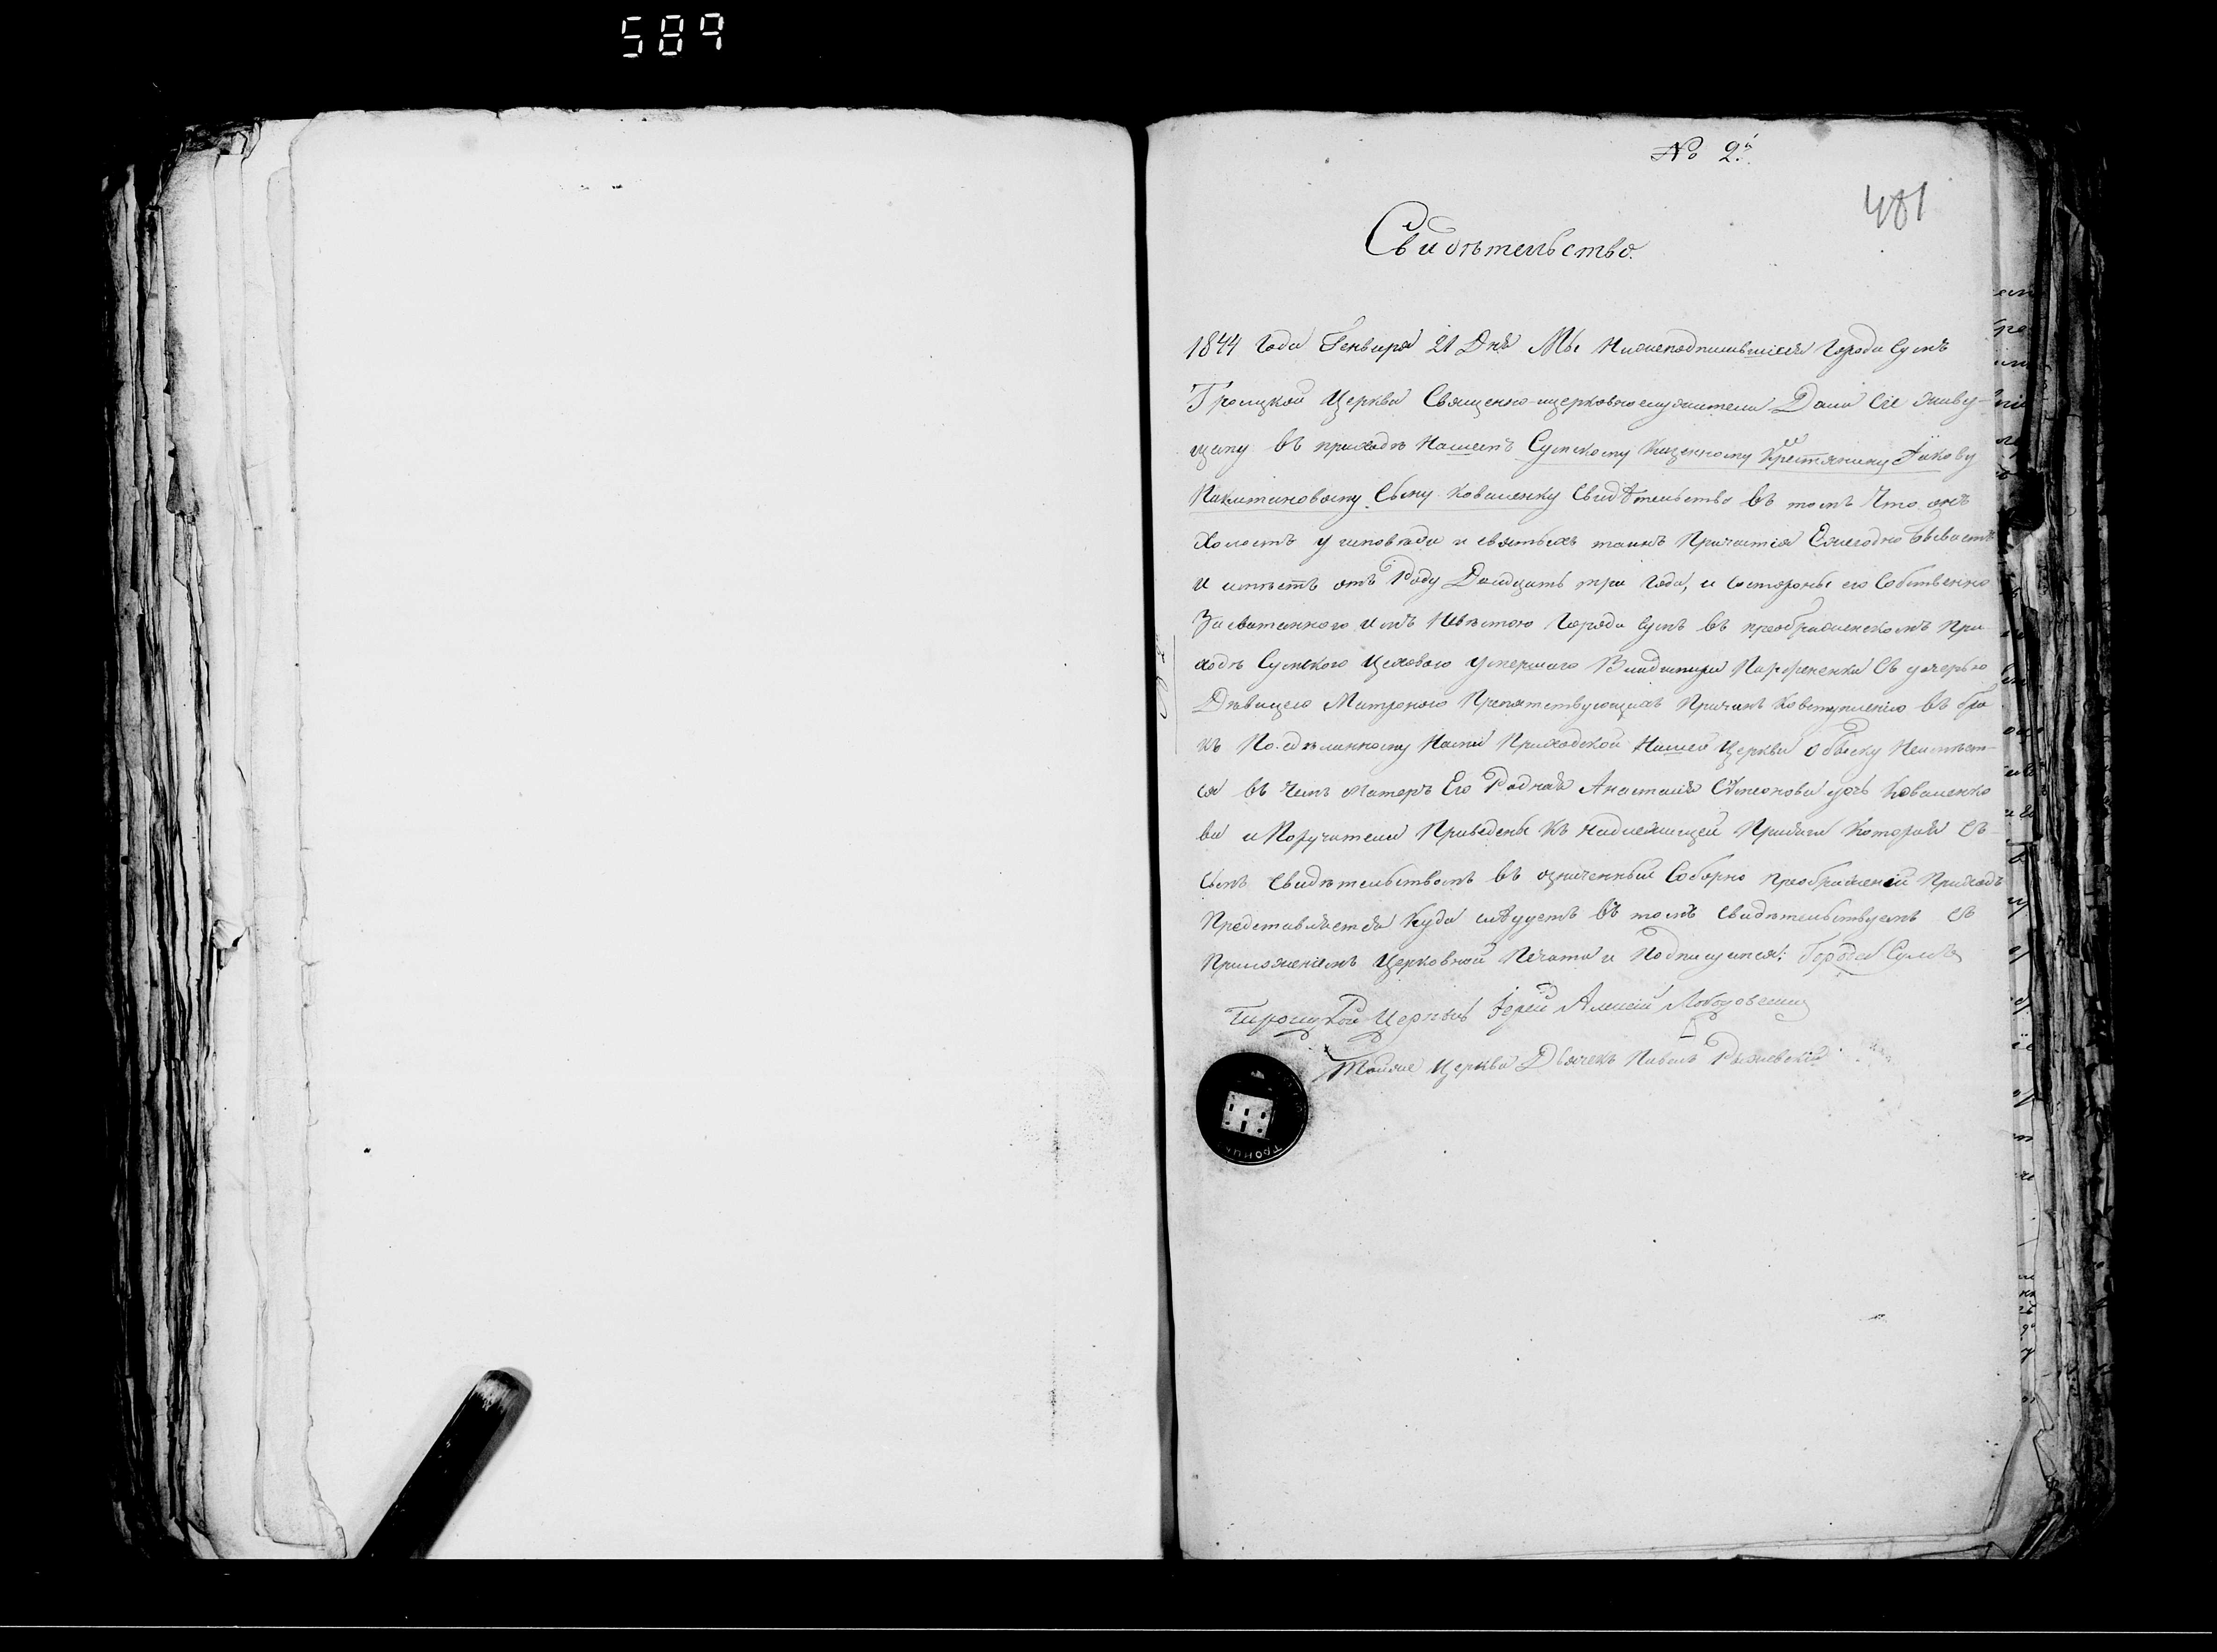 589
№ 2й
481
Свидѣтельство.
1844 Года Генваря 21 Дня Мы Нижеподписавшіеся Города Сумъ
Троицкой Церкви Священно-церковнослужители Дали Сіе живу-
щему въ приходѣ Нашемъ Сумскому Казенному Крестянину Іакову
Сыну Коваленку Свидѣтельство въ томъ Что онъ
Холостъ у исповѣди и святыхъ таинъ Причастія Ежегодно бываетъ
и имѣетъ отъ Роду Двадцать три Года, и состороны его Собственно
Засватанного имъ Невѣстою Города Сумъ въ преображенскомъ При
ходѣ Сумского Цехового умершаго Владимира Парфененка Съ дочерью
Дѣвицею Матроною Препятствующихъ Причинъ Ковступленію въ бра
къ По сдѣланному Нами Приходской Нашей Церкви обыску Неимѣет-
ся въ Чемъ матерь Его Родная Анастасія Сѵмеонова дочь Коваленко
ва и Поручители Приведены къ надлежащей Присяги Которой Съ
Симъ Свидѣтельствомъ въ означенный Соборно преображеній Приходъ
Представляется Куда слѣдуетъ въ томъ Свидѣтельствуемъ съ
Приложеніемъ Церковной Печати и Подписуемся: Города Сумъ
Троицкой Церкви Іерей Алексій
Тойже Церкви Дьячекъ Павелъ Рыжевскій
ТРОИЦК